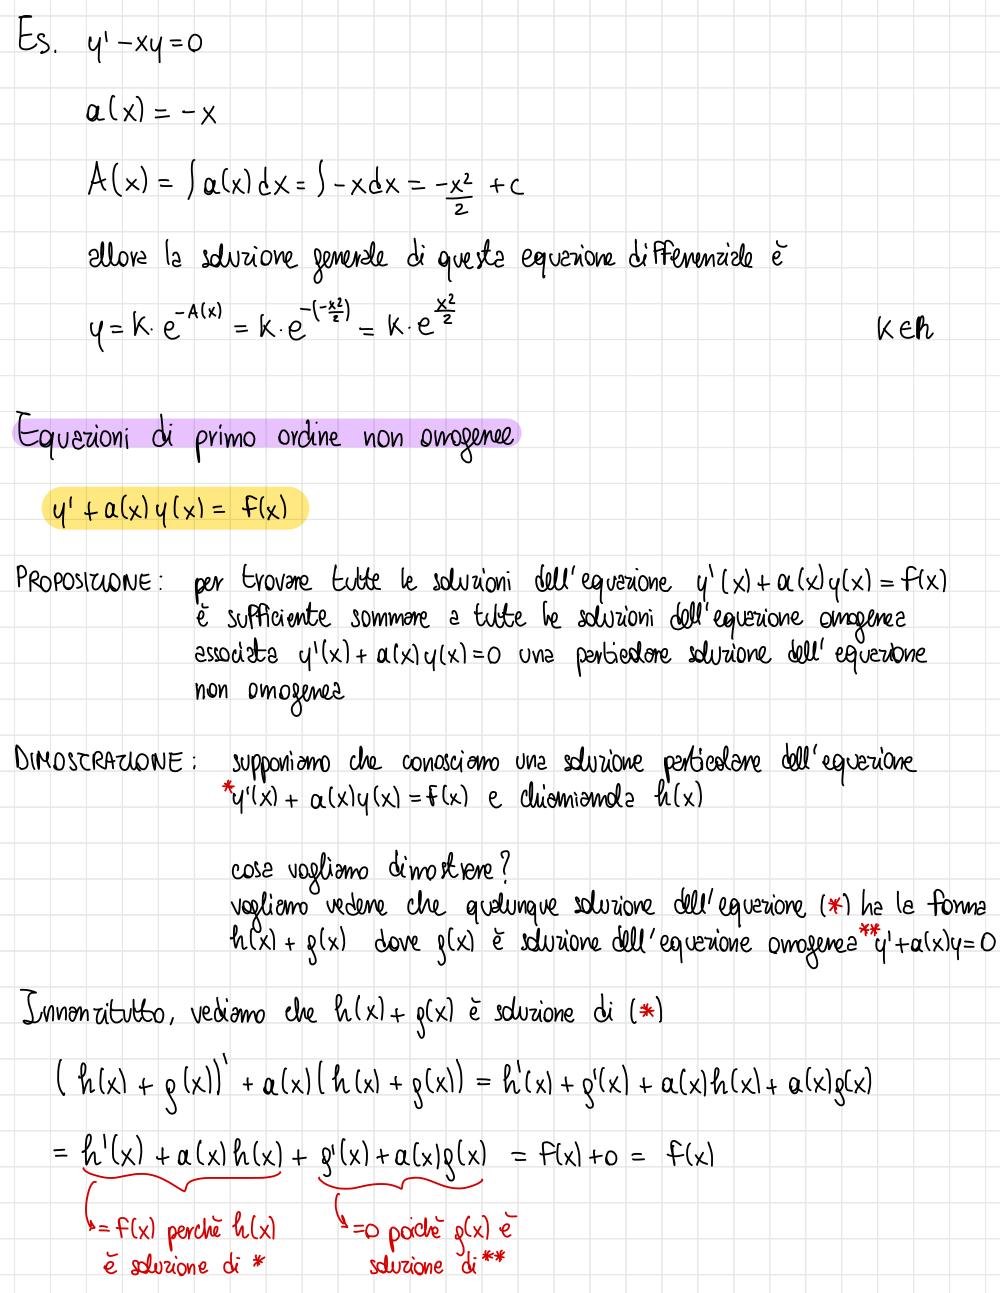 Es. y' - xy = 0
a(x) = -x
A(x) = ∫ a(x) dx = ∫ -x dx = -x²/2 + c
allora la soluzione generale di questa equazione differenziale è
y = k · e^(-A(x)) = k · e^(-(-x²/2)) = k · e^(x²/2) k ∈ ℝ
Equazioni di primo ordine non omogenee
y' + a(x) y(x) = f(x)
PROPOSIZIONE: per trovare tutte le soluzioni dell'equazione y'(x) + a(x) y(x) = f(x)
è sufficiente sommare a tutte le soluzioni dell'equazione omogenea
associata y'(x) + a(x) y(x) = 0 una particolare soluzione dell'equazione
non omogenea
DIMOSTRAZIONE: supponiamo che conosciamo una soluzione particolare dell'equazione
* y'(x) + a(x) y(x) = f(x) e chiamiamola h(x)
cosa vogliamo dimostrare?
vogliamo vedere che qualunque soluzione dell'equazione (*) ha la forma
h(x) + g(x) dove g(x) è soluzione dell'equazione omogenea ** y' + a(x) y = 0
Innanzitutto, vediamo che h(x) + g(x) è soluzione di (*)
(h(x) + g(x))' + a(x) (h(x) + g(x)) = h'(x) + g'(x) + a(x) h(x) + a(x) g(x)
= h'(x) + a(x) h(x) + g'(x) + a(x) g(x) = f(x) + 0 = f(x)
= f(x) perchè h(x) =0 poichè g(x) è
è soluzione di * soluzione di **